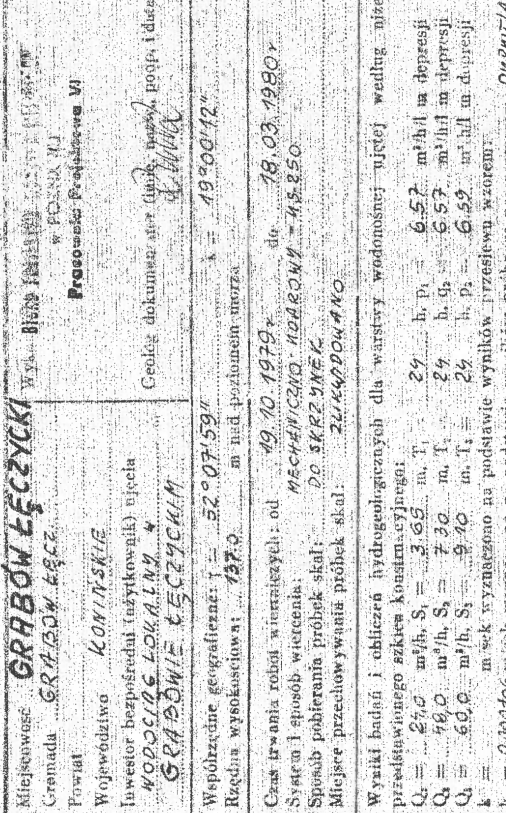 Miejscowość GRABÓW ŁĘCZYCKI
Gromada GRABÓW ŁĘCZ.
Powiat
Województwo KONIŃSKIE
Inwestor bezpośredni (użytkownik) ujęcia
WODOCIĄG LOKALNY W
GRABOWIE ŁĘCZYCKIM
Wyk. Biuro
w
Pracownia Projektowa VI
Geolog dokumentator (imię, nazw., poop. i data
Współrzędne geograficzne: = 52°07'59" = 19°00'12"
Rzędna wysokościowa: 137.0 m nad poziomem morza
Czas trwania robót wiertniczych: od 19.10.1979r do 18.03.1980r
System i sposób wiercenia: MECHANICZNO-UDAROWY -
Sposób pobierania próbek skał: DO SKRZYNEK
Miejsce przechowywania próbek skał: ZLIKWIDOWANO
Wyniki badań i obliczeń hydrogeologicznych dla warstwy wodonośnej ujętej według niże
przedstawionego szkicu konstrukcyjnego:
Q₁ = 24,0 m³/h, S₁ = 3.65 m, T₁ = 24 h, p₁ = 6.57 m³/h/l m depresji
Q₂ = 48,0 m³/h, S₂ = 7.30 m, T, 24 h, q₂ = 6.57 m³/h/l m depresji
Q₃ = 60,0 m³/h, S₃ = 9.10 m, T₃ = 24 h, p₃ = 6.59 m³/h/l m depresji
k = m/sek wyznaczono na podstawie wyników przesiewu wzorem: